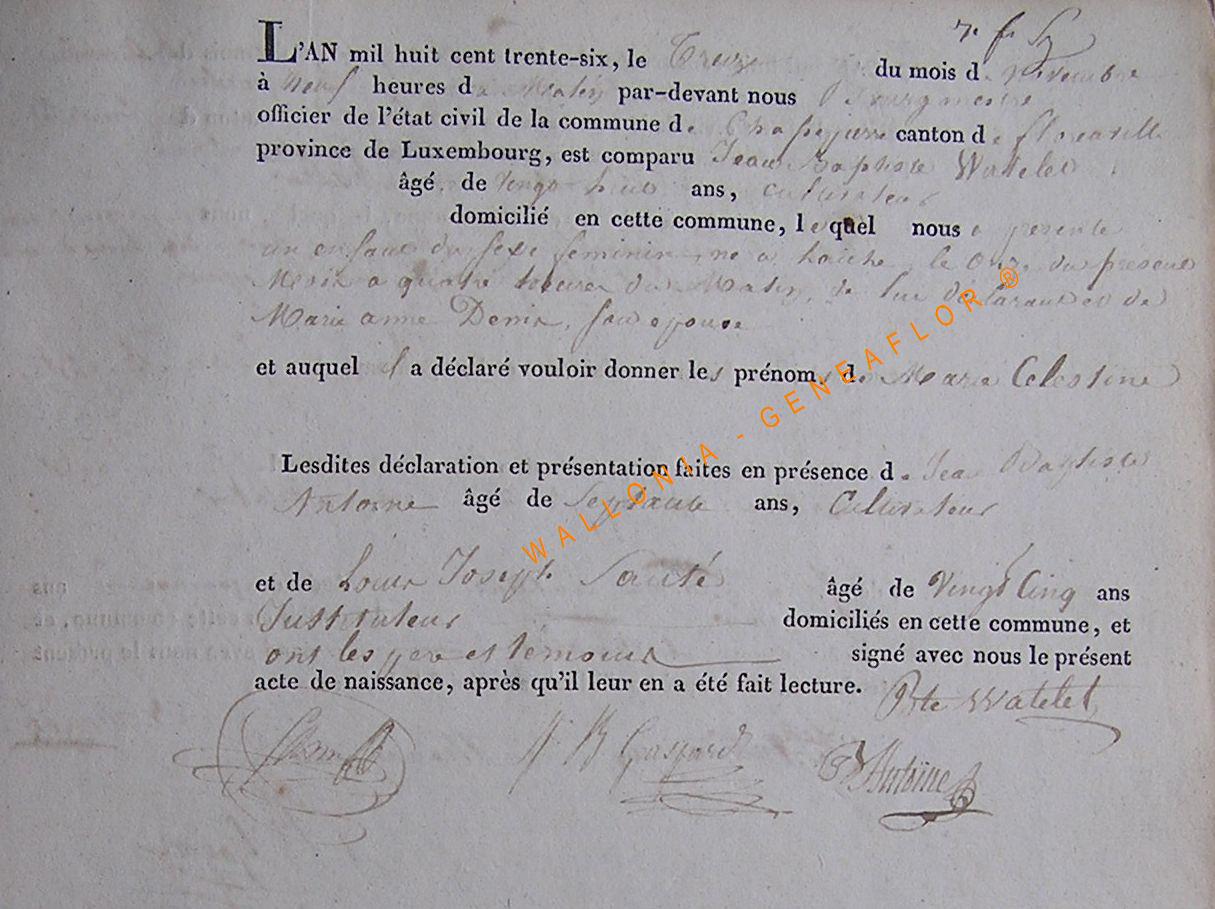 L'AN mil huit cent trente-six, le Treize du mois de Novembre
à Neuf heures du Matin par-devant nous Bourgmestre
officier de l'état civil de la commune de canton de florenville
province de Luxembourg, est comparu Jean Baptiste Wattelet
âgé de Vingt huit ans, cultivateur
domicilié en cette commune, lequel nous a presenté
un enfant du sexe feminin, né a le Onze du present
Mois a quatre heures du Matin, de lui declarant et de
Marie anne Denis, son epouse
et auquel il a déclaré vouloir donner les prénoms de Marie Celestine
Lesdites déclaration et présentation faites en présence de Jean Baptiste
Antoine âgé de ans, Cultivateur
et de Louis Joseph âgé de Vingt Cinq ans
Instituteur domiciliés en cette commune, et
ont les pere et temoins signé avec nous le présent
acte de naissance, après qu'il leur en a été fait lecture.
Bte Watelet
Gaspard
Antoine
WALLONIA - GENEAFLOR ®